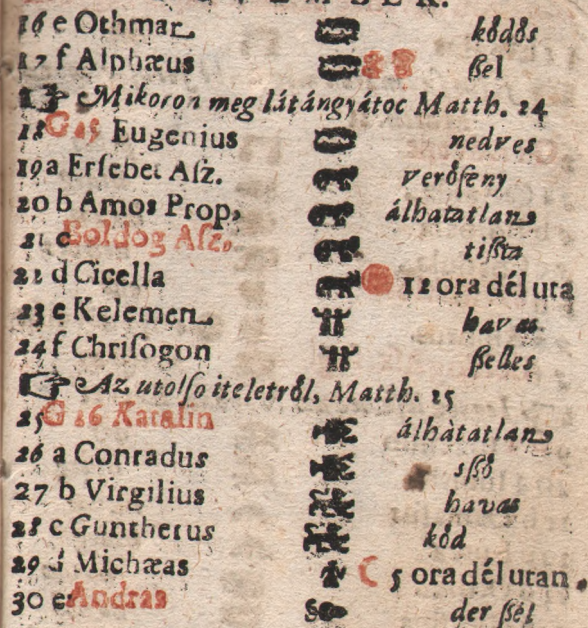 16 e Othmar ködös
17 f Alphæus ßel
☞ Mikoron meg látángyátoc Matth. 24
18 G 25 Eugenius nedves
19 a Erſebet Aſz. veröfény
20 b Amos Prop, álhatatlan
21 c Boldog Aſz. tißta
22 d Cicella 12 ora dél uta
23 e Kelemen havas
24 f Chriſogon ßelles
☞ Az utolſo iteletröl, Matth. 25
25 G 26 Katalin álhàtatlan
26 a Conradus
27 b Virgilius havas
28 c Guntherus köd
29 d Michæas 5 ora dél utan.
30 e Andras der ßél